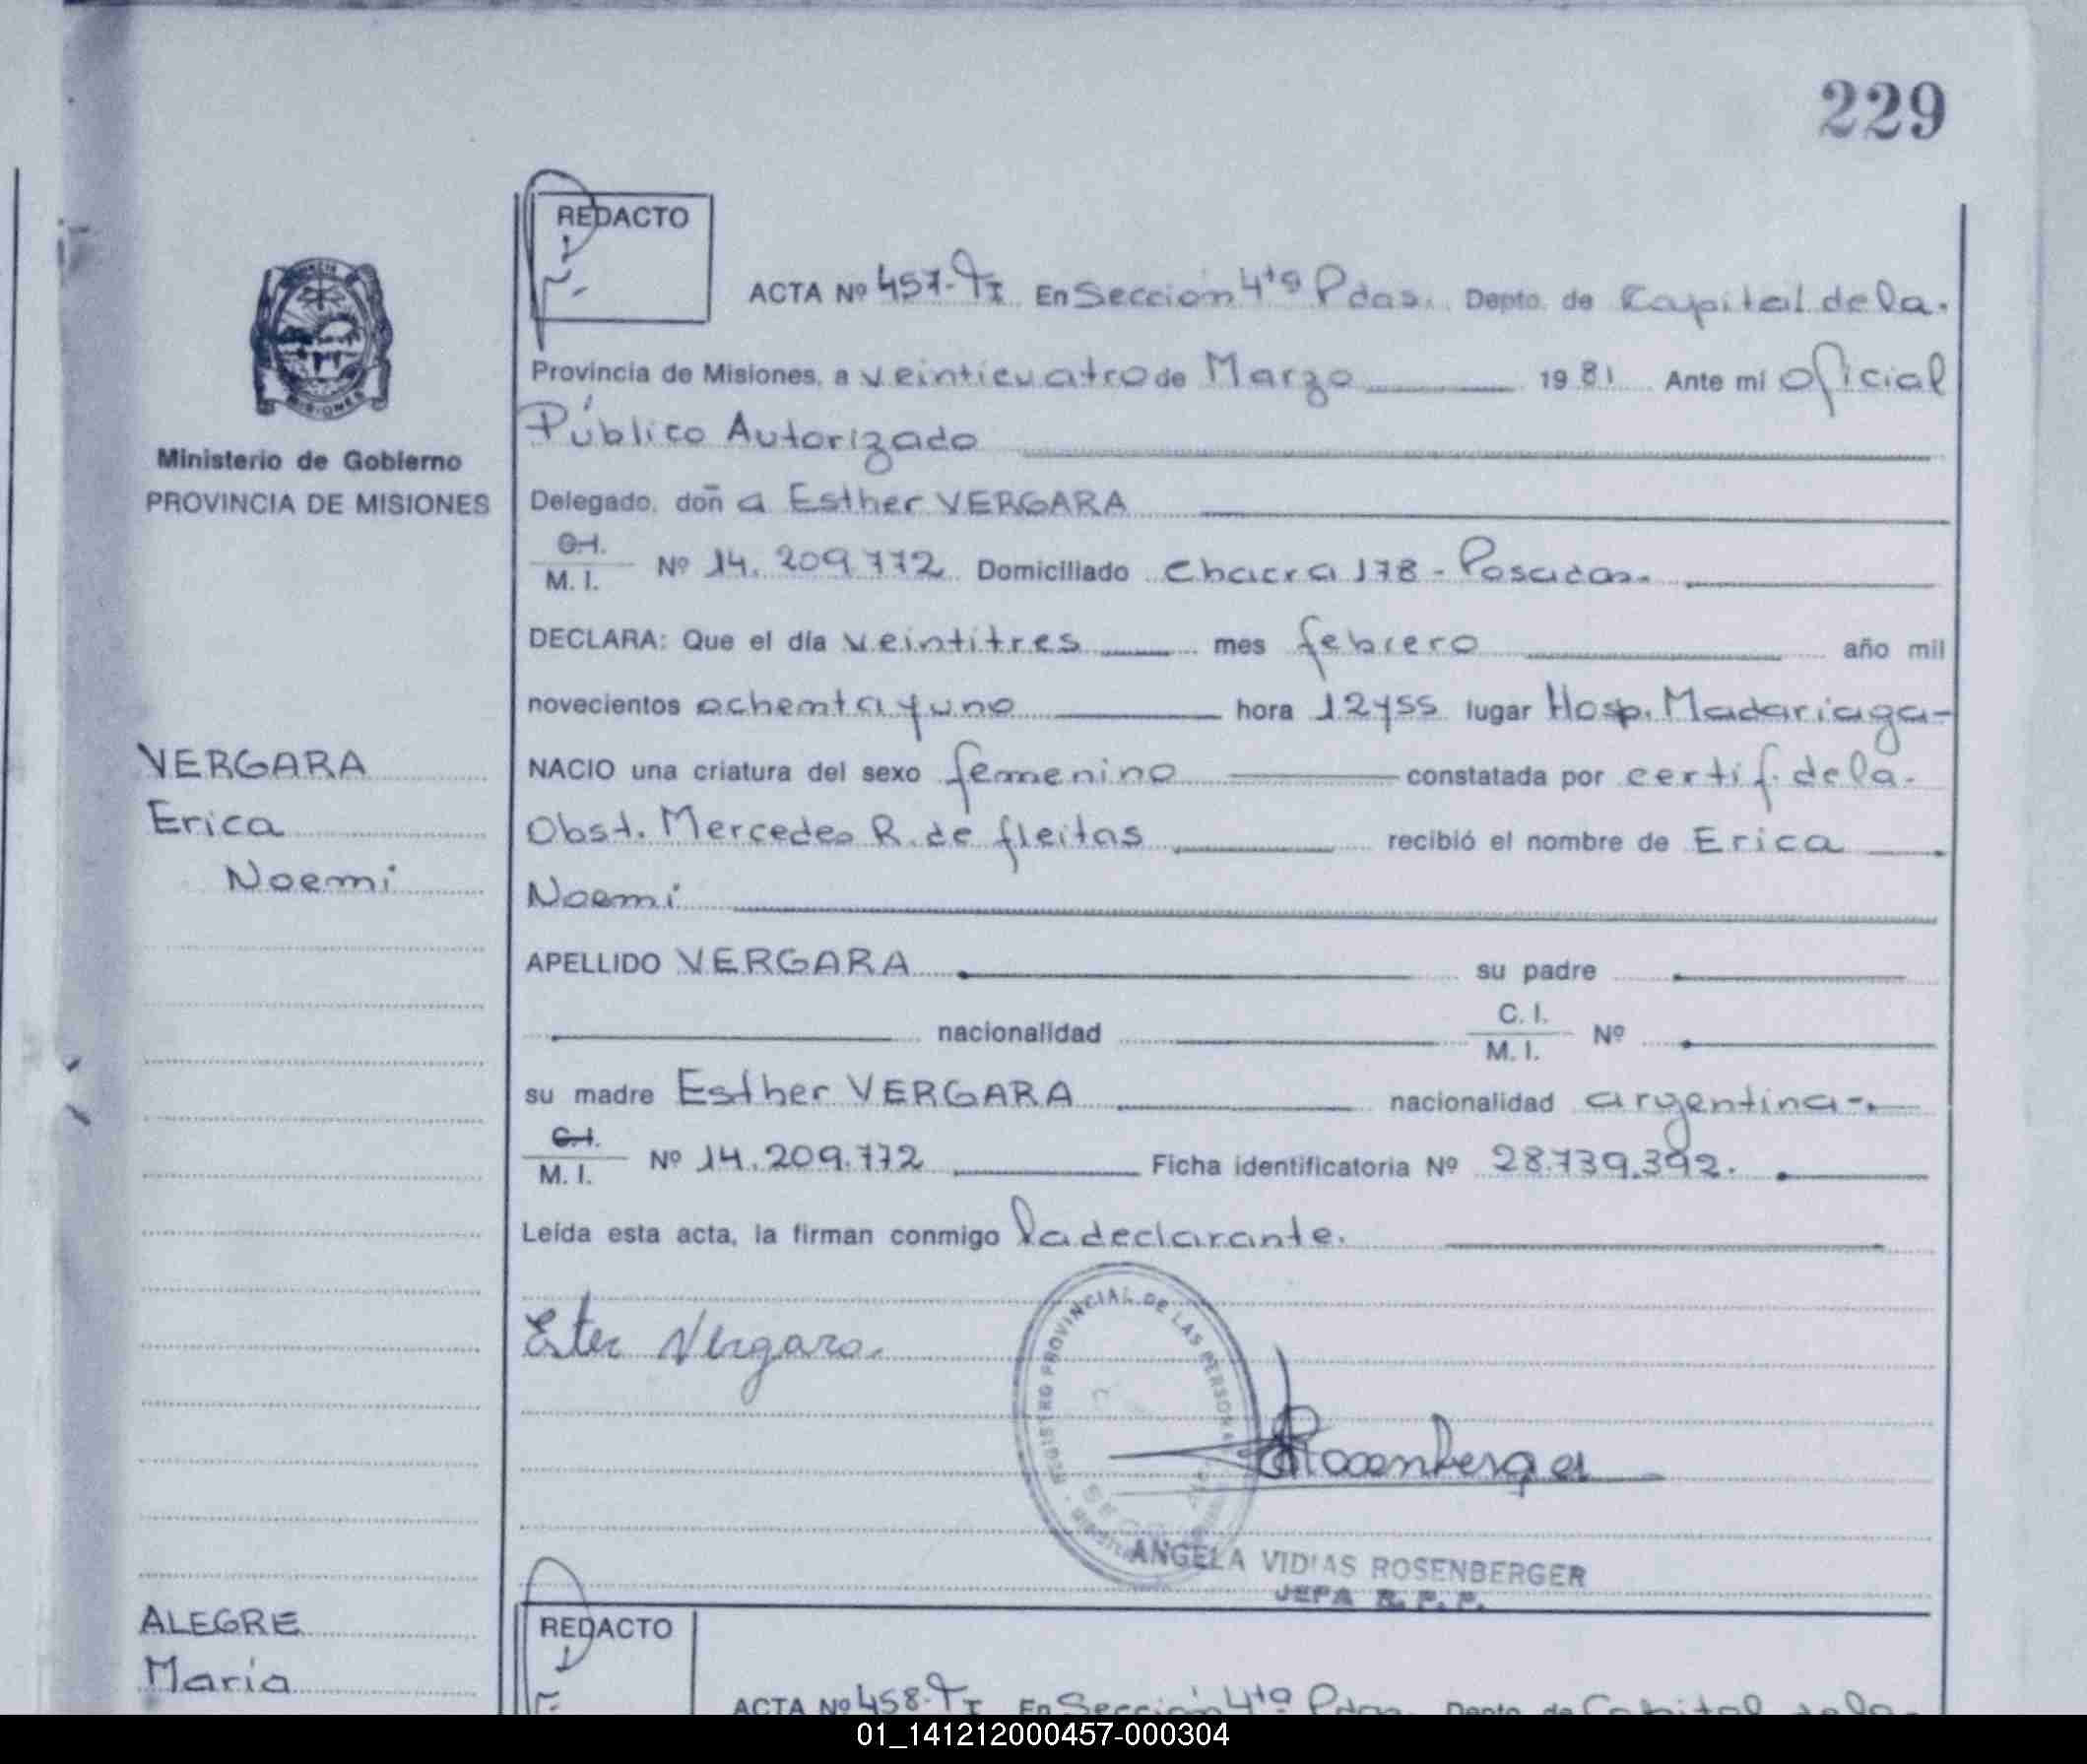 229
REDACTO
ACTA Nº 457-TI En Sección 4ta Pdas. Depto. de Capital de la.
Provincia de Misiones, a veinticuatro de Marzo 1981 Ante mi Oficial
Público Autorizado
Ministerio de Gobierno
PROVINCIA DE MISIONES
Delegado, doña Esther VERGARA
C.I.
M.I. Nº 14.209.772 Domiciliado Chacra 178 - Posadas.
DECLARA: Que el día veintitres mes febrero año mil
novecientos ochenta y uno hora 12y55 lugar Hosp. Madariaga-
VERGARA
Erica
Noemi
NACIO una criatura del sexo femenino constatada por certif. de la.
Obst. Mercedes R. de fleitas recibió el nombre de Erica
Noemi
APELLIDO VERGARA su padre
nacionalidad C.I.
M.I. Nº
su madre Esther VERGARA nacionalidad argentina-.
C.I.
M.I. Nº 14.209.772 Ficha identificatoria Nº 28.739.392.
Leída esta acta, la firman conmigo la declarante.
Ester Vergara.
REGISTRO PROVINCIAL DE LAS PERSONAS
Rosenberger
ANGELA VIDIAS ROSENBERGER
JEFA R. P. P.
ALEGRE
María
REDACTO
ACTA Nº 458-TI En Sección 4ta Pdas. Depto de Capital de la.
01_141212000457-000304